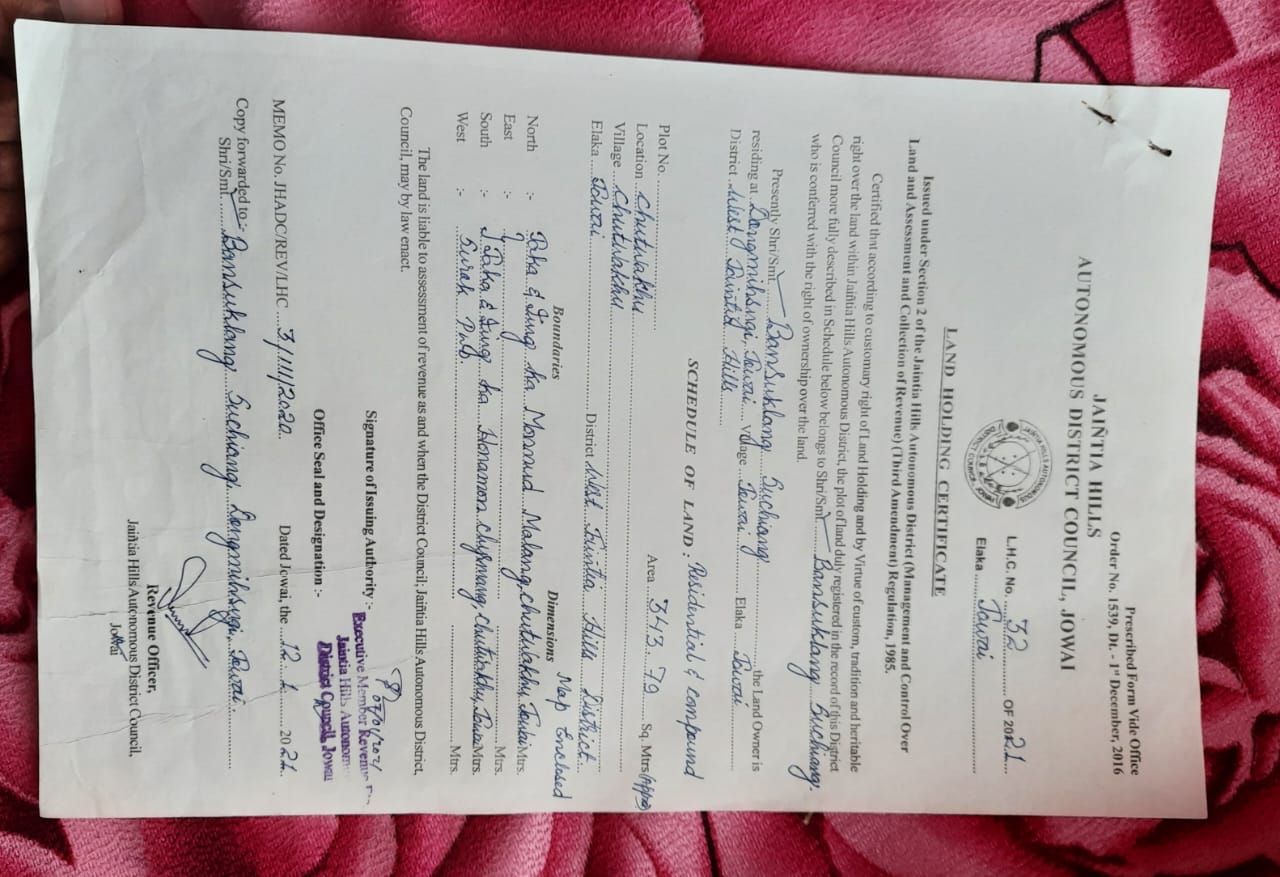 Prescribed Form Vide Office
Order No. 1539, Dt. - 1st December, 2016
JAIÑTIA HILLS
AUTONOMOUS DISTRICT COUNCIL, JOWAI
L.H.C. No. 32 OF 2021
Elaka Jowai
LAND HOLDING CERTIFICATE
Issued under Section 2 of the Jaintia Hills Autonomous District (Management and Control Over
Land and Assessment and Collection of Revenue) (Third Amendment) Regulation, 1985.
Certified that according to customary right of Land Holding and by Virtue of custom, tradition and heritable
right over the land within Jaiñtia Hills Autonomous District, the plot of land duly registered in the record of this District
Council more fully described in Schedule below belongs to Shri/Smt Bansuklang Suchiang.
who is conferred with the right of ownership over the land.
Presently Shri/Smt. Bansuklang Suchiang the Land Owner is
residing at Dongmihsngi, Jowai village Jowai Elaka Jowai
District West Jaintia Hills
SCHEDULE OF LAND : Residential & compound
Plot No. Area 343.79 Sq. Mtrs (Approx)
Location Chutwakhu
Village Chutwakhu
Elaka Jowai District West Jaintia Hills District
Boundaries Dimensions Map Enclosed
North :- Paka & Iung ka Monmud Malang, Chutwakhu, Jowai Mtrs.
East :- Mtrs.
South :- Paka & Iung ka Chutwakhu, Jowai Mtrs.
West :- Surak Mtrs.
The land is liable to assessment of revenue as and when the District Council, Jaiñtia Hills Autonomous District,
Council, may by law enact.
Signature of Issuing Authority :-
Executive Member Revenue
Jaintia Hills Autonom
Office Seal and Designation :- District Council, Jowai
MEMO No. JHADC/REV/LHC 3/III/2020 Dated Jowai, the 12.1. 2021.
Copy forwarded to :-
Shri/Smt. Bansuklang Suchiang, Dongmihsngi, Jowai
Revenue Officer,
Jaiñtia Hills Autonomous District Council,
Jowai